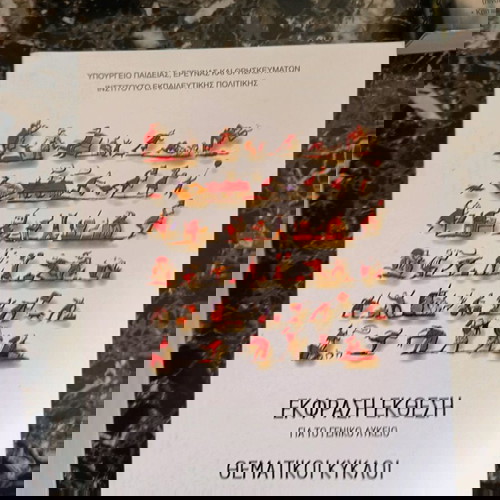 ΥΠΟΥΡΓΕΙΟ ΠΑΙΔΕΙΑΣ, ΕΡΕΥΝΑΣ ΚΑΙ ΘΡΗΣΚΕΥΜΑΤΩΝ
ΙΝΣΤΙΤΟΥΤΟ ΕΚΠΑΙΔΕΥΤΙΚΗΣ ΠΟΛΙΤΙΚΗΣ
ΕΚΦΡΑΣΗ ΕΚΘΕΣΗ
ΓΙΑ ΤΟ ΓΕΝΙΚΟ ΛΥΚΕΙΟ
ΘΕΜΑΤΙΚΟΙ ΚΥΚΛΟΙ